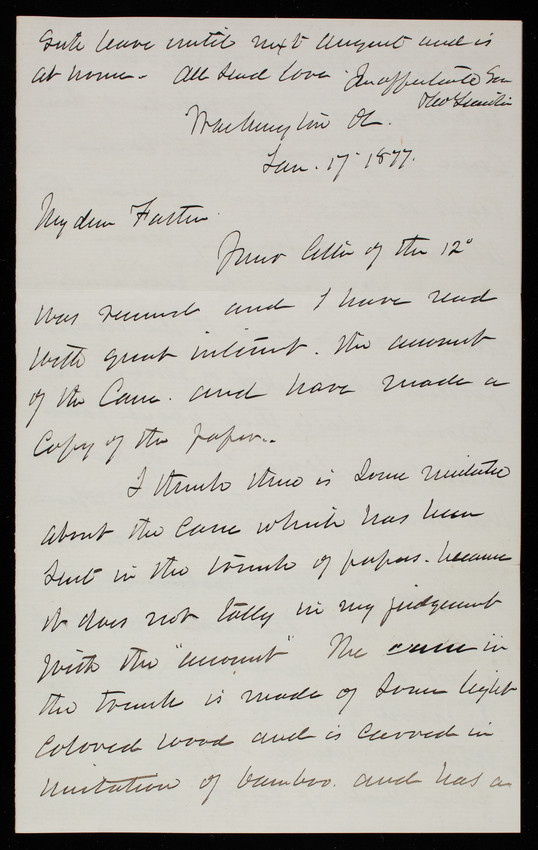 leave until next August and is
at home. All send love Your affectionate Son
Washington DC.
Jan. 17 1877.
My dear Father
Your letter of the 12"
was received and I have read
with great interest. the account
of the Cane. and have made a
Copy of the paper..
I think there is Some mistake
about the cane which has been
Sent in the trunk of papers. because
it does not tally in my judgement
with the "account" The cane in
the trunk is made of Some light
Colored wood and is carved in
imitation of bamboo. and has a